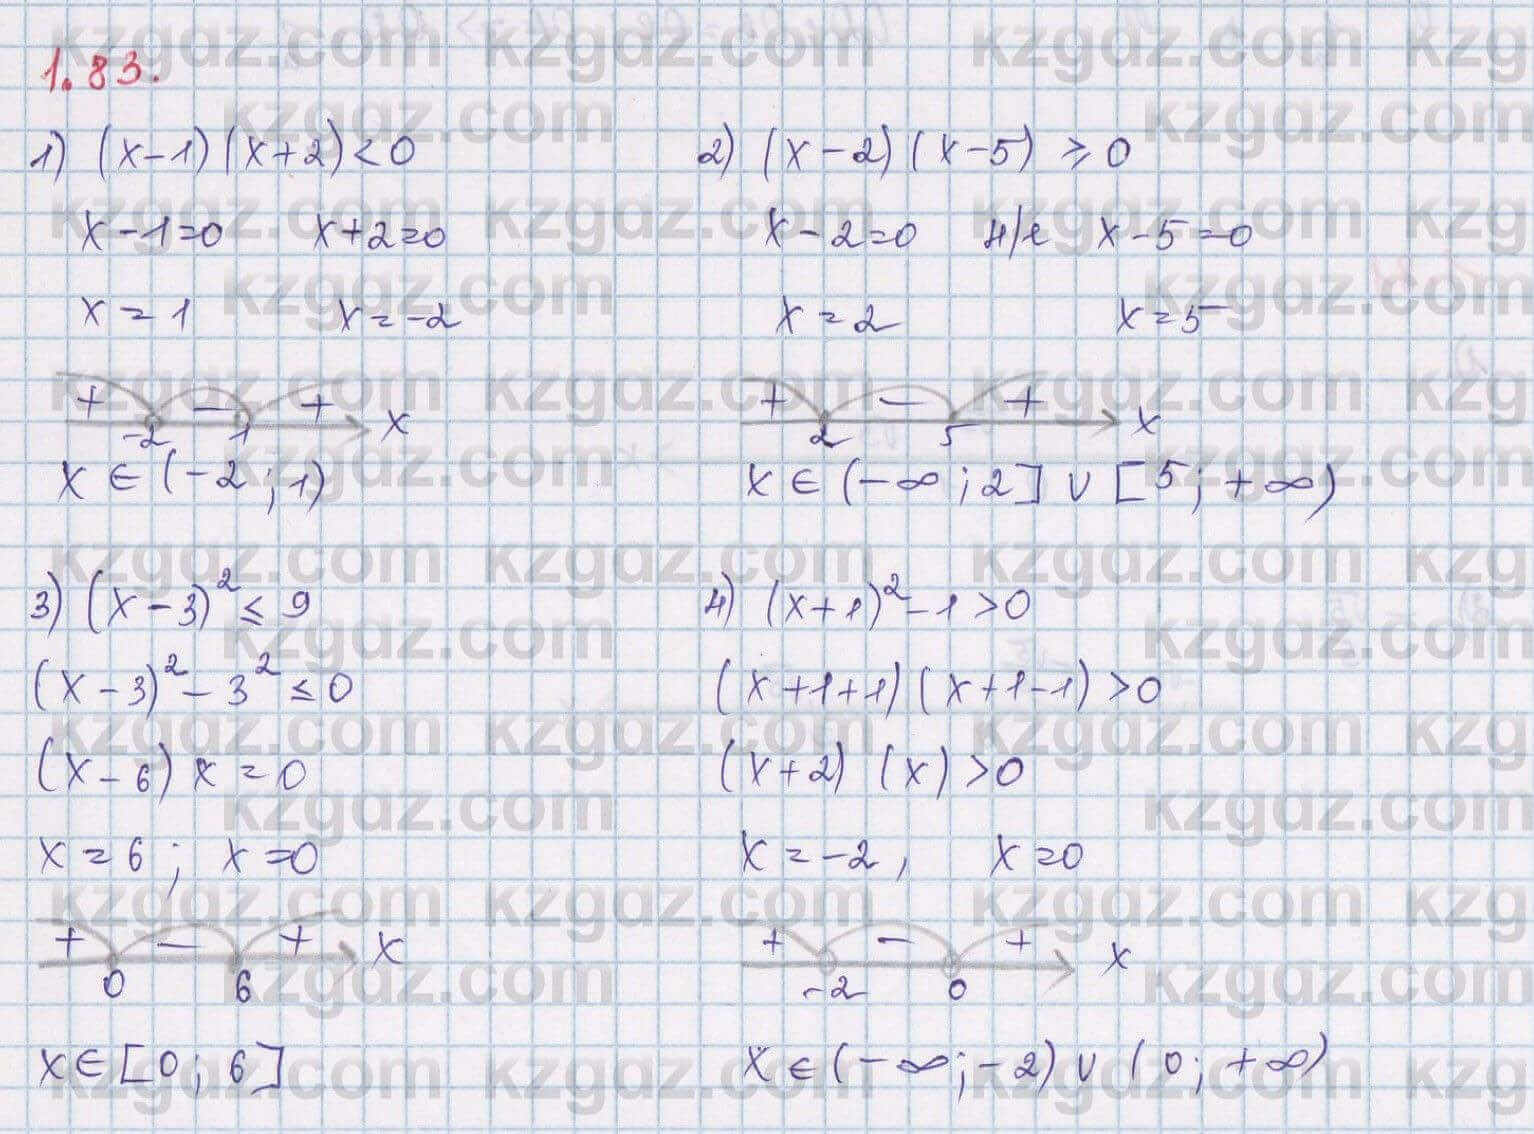 1.83.
1) (x-1)(x+2)<0
x-1=0 x+2=0
x=1 x=-2
+ - + x
-2 1
x∈(-2;1)
2) (x-2)(x-5)≥0
x-2=0 н/е x-5=0
x=2 x=5
+ - + x
2 5
x∈(-∞;2]∪[5;+∞)
3) (x-3)²≤9
(x-3)²-3²≤0
(x-6)x=0
x=6; x=0
+ - + x
0 6
x∈[0;6]
4) (x+1)²-1>0
(x+1+1)(x+1-1)>0
(x+2)(x)>0
x=-2, x=0
+ - + x
-2 0
x∈(-∞;-2)∪(0;+∞)
kzgdz.com